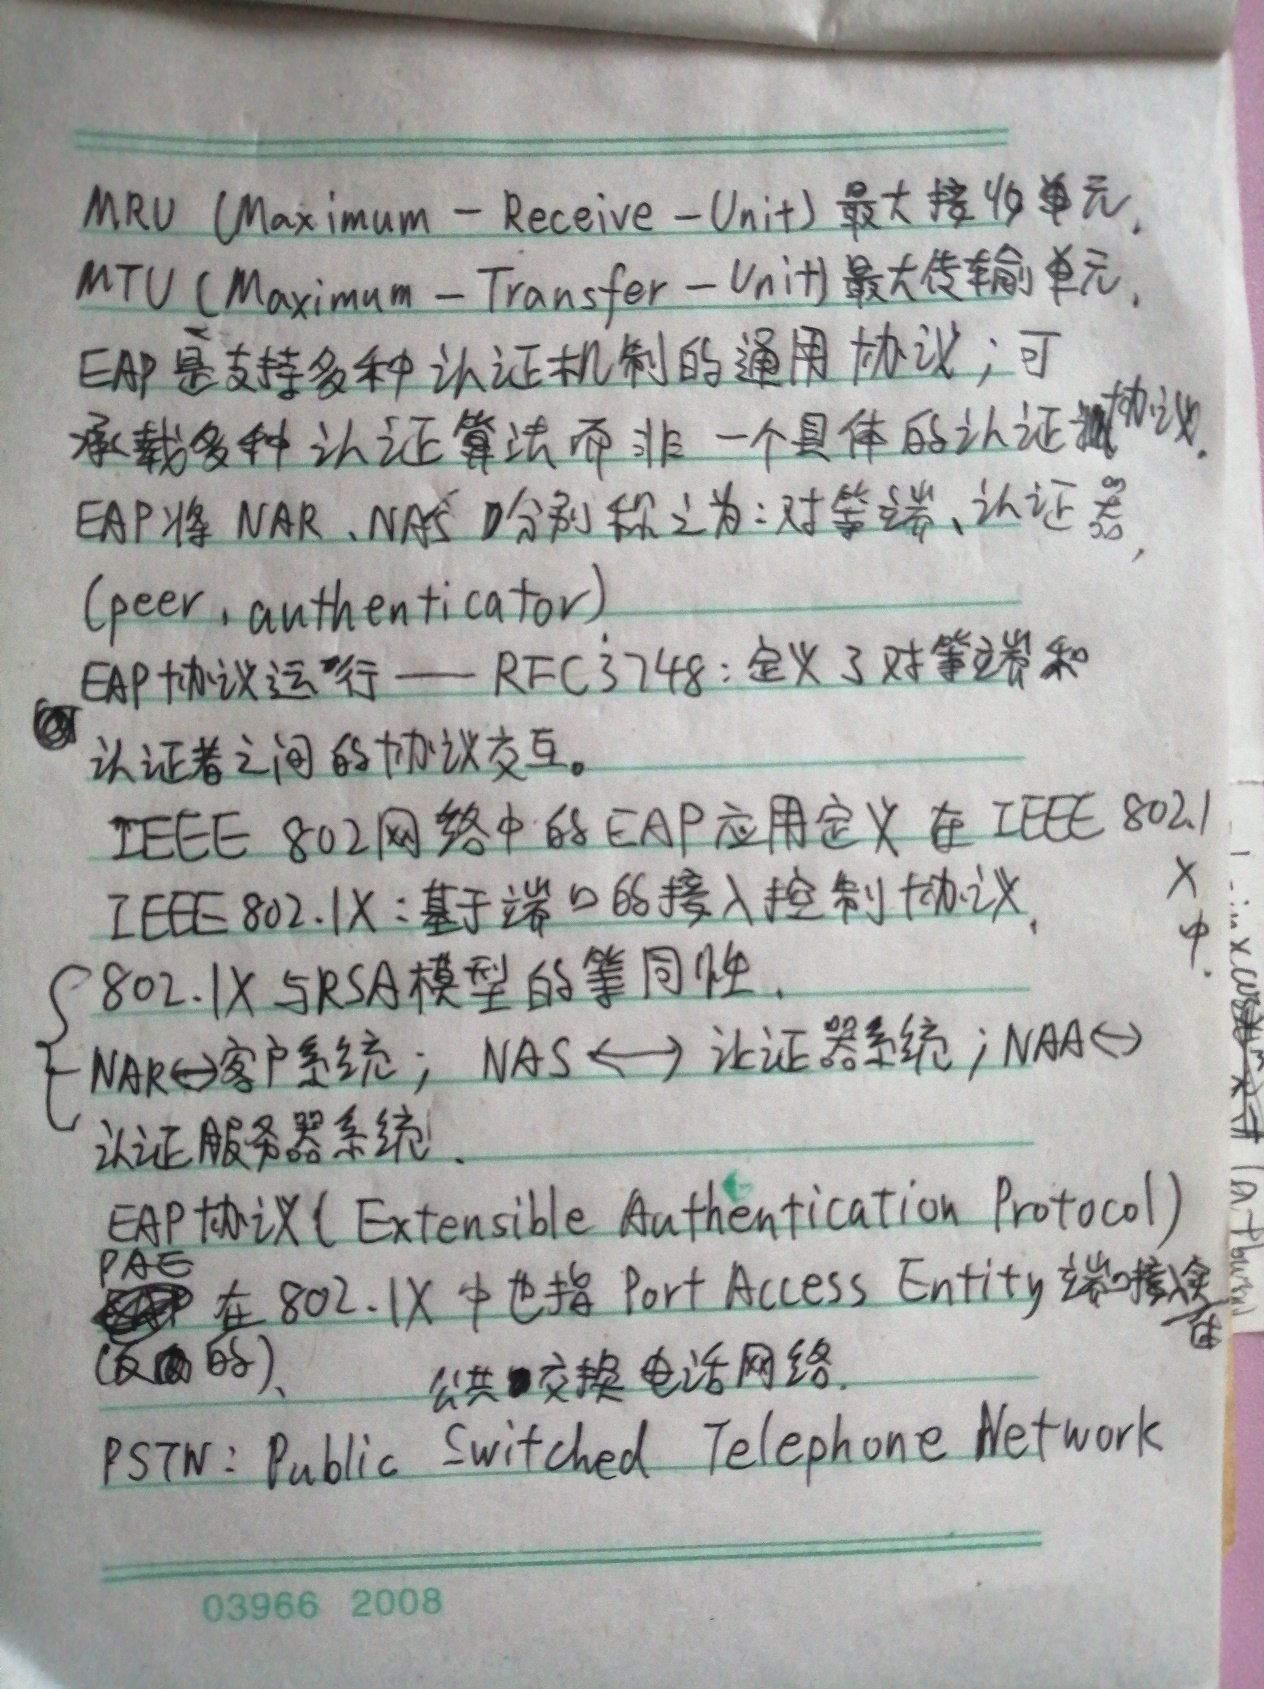 MRU (Maximum - Receive - Unit) 最大接收单元.
MTU (Maximum - Transfer - Unit) 最大传输单元.
EAP是支持多种认证机制的通用协议；可
承载多种认证算法而非一个具体的认证协议.
EAP将NAR、NAS分别称之为：对等端、认证器,
(peer, authenticator)
EAP协议运行——RFC3748：定义了对等端和
认证者之间的协议交互。
IEEE 802网络中的EAP应用定义在IEEE 802.1
X
中.
IEEE 802.1X：基于端口的接入控制协议.
802.1X与RSA模型的等同性.
NAR↔客户系统； NAS↔认证器系统；NAA↔
认证服务器系统.
EAP协议(Extensible Authentication Protocol)
PAE
在802.1X中也指Port Access Entity端口接入实
体
的)、
公共交换电话网络.
PSTN：Public Switched Telephone Network
03966 2008